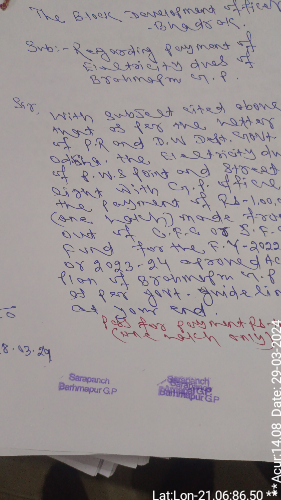 The Block Development officer
Bhadrak.
Sub:- Regarding payment of
Electricity dues of
Brahmapm G.P.
Sir,
With subject cited above
that as per the letter
of P.R and D.W Deptt. Govt.
Odisha. the Electricity du
of P.W.S point and street
light with G.P. office
the payment of Rs-1,00,0
(one lakh) made fro
out of C.F.C or S.F.C
Fund for the F.Y-2022
or 2023-24 aproved Ac
plan of Brahmapm G.P
as per govt. guide lin
at your end.
Pass for payment Rs
(one lakh only
8.03.24
Sarapanch
Barhmapur G.P
Sarapanch
Barhmapur G.P
Lat:Lon-21.06:86.50
**Acur:14.08 Date: 29-03-2024